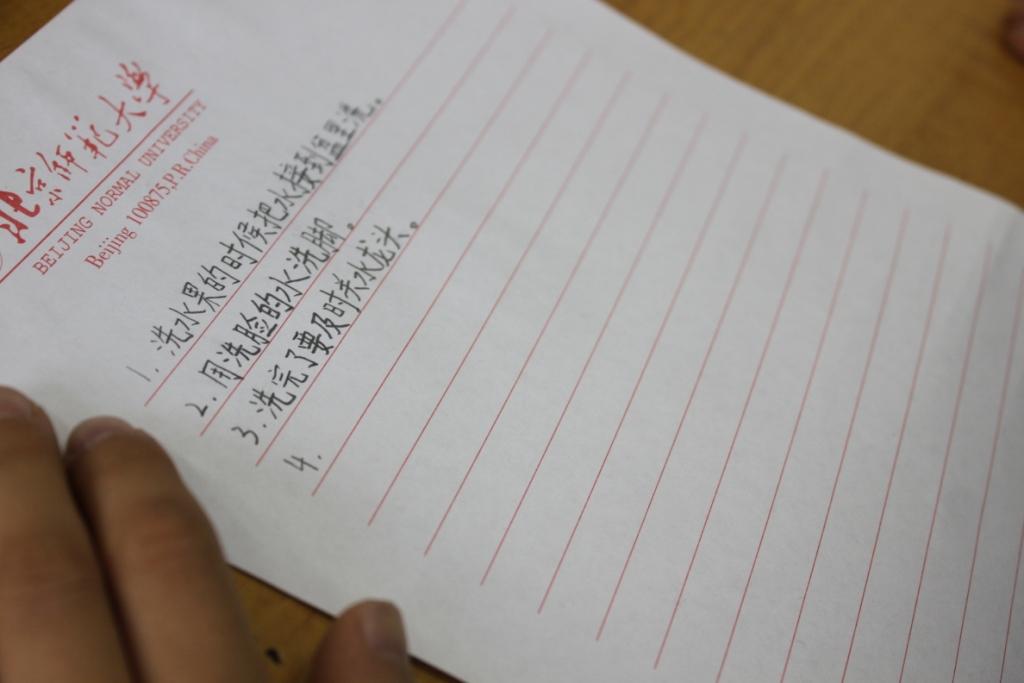 北京师范大学
BEIJING NORMAL UNIVERSITY
Beijing 100875,P.R.China
1. 洗水果的时候把水接到盆里洗。
2. 用洗脸的水洗脚。
3. 洗完了要及时关水龙头。
4.